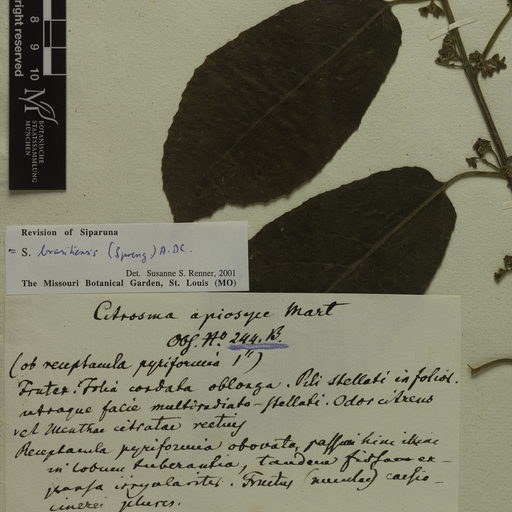 right reserved
8 9 10
BOTANISCHE
STAATSSAMMLUNG
MÜNCHEN
Revision of Siparuna
= S. brasiliensis (Spreng) A.DC.
Det. Susanne S. Renner, 2001
The Missouri Botanical Garden, St. Louis (MO)
Citrosma apiosyce Mart
Obs. No 244.B.
(ob receptacula pyriformia 1")
Frutex. Folia cordata oblonga. Pili stellati in folior.
utraque facie multiradiato-stellati. Odor citreus
vel Menthae citratae rectius
Receptacula pyriformia obovata, passim hinc illinc
in lobum tuberantia, tandem
irregulariter. Fructus (nuculae) caesio-
cinerei plures.